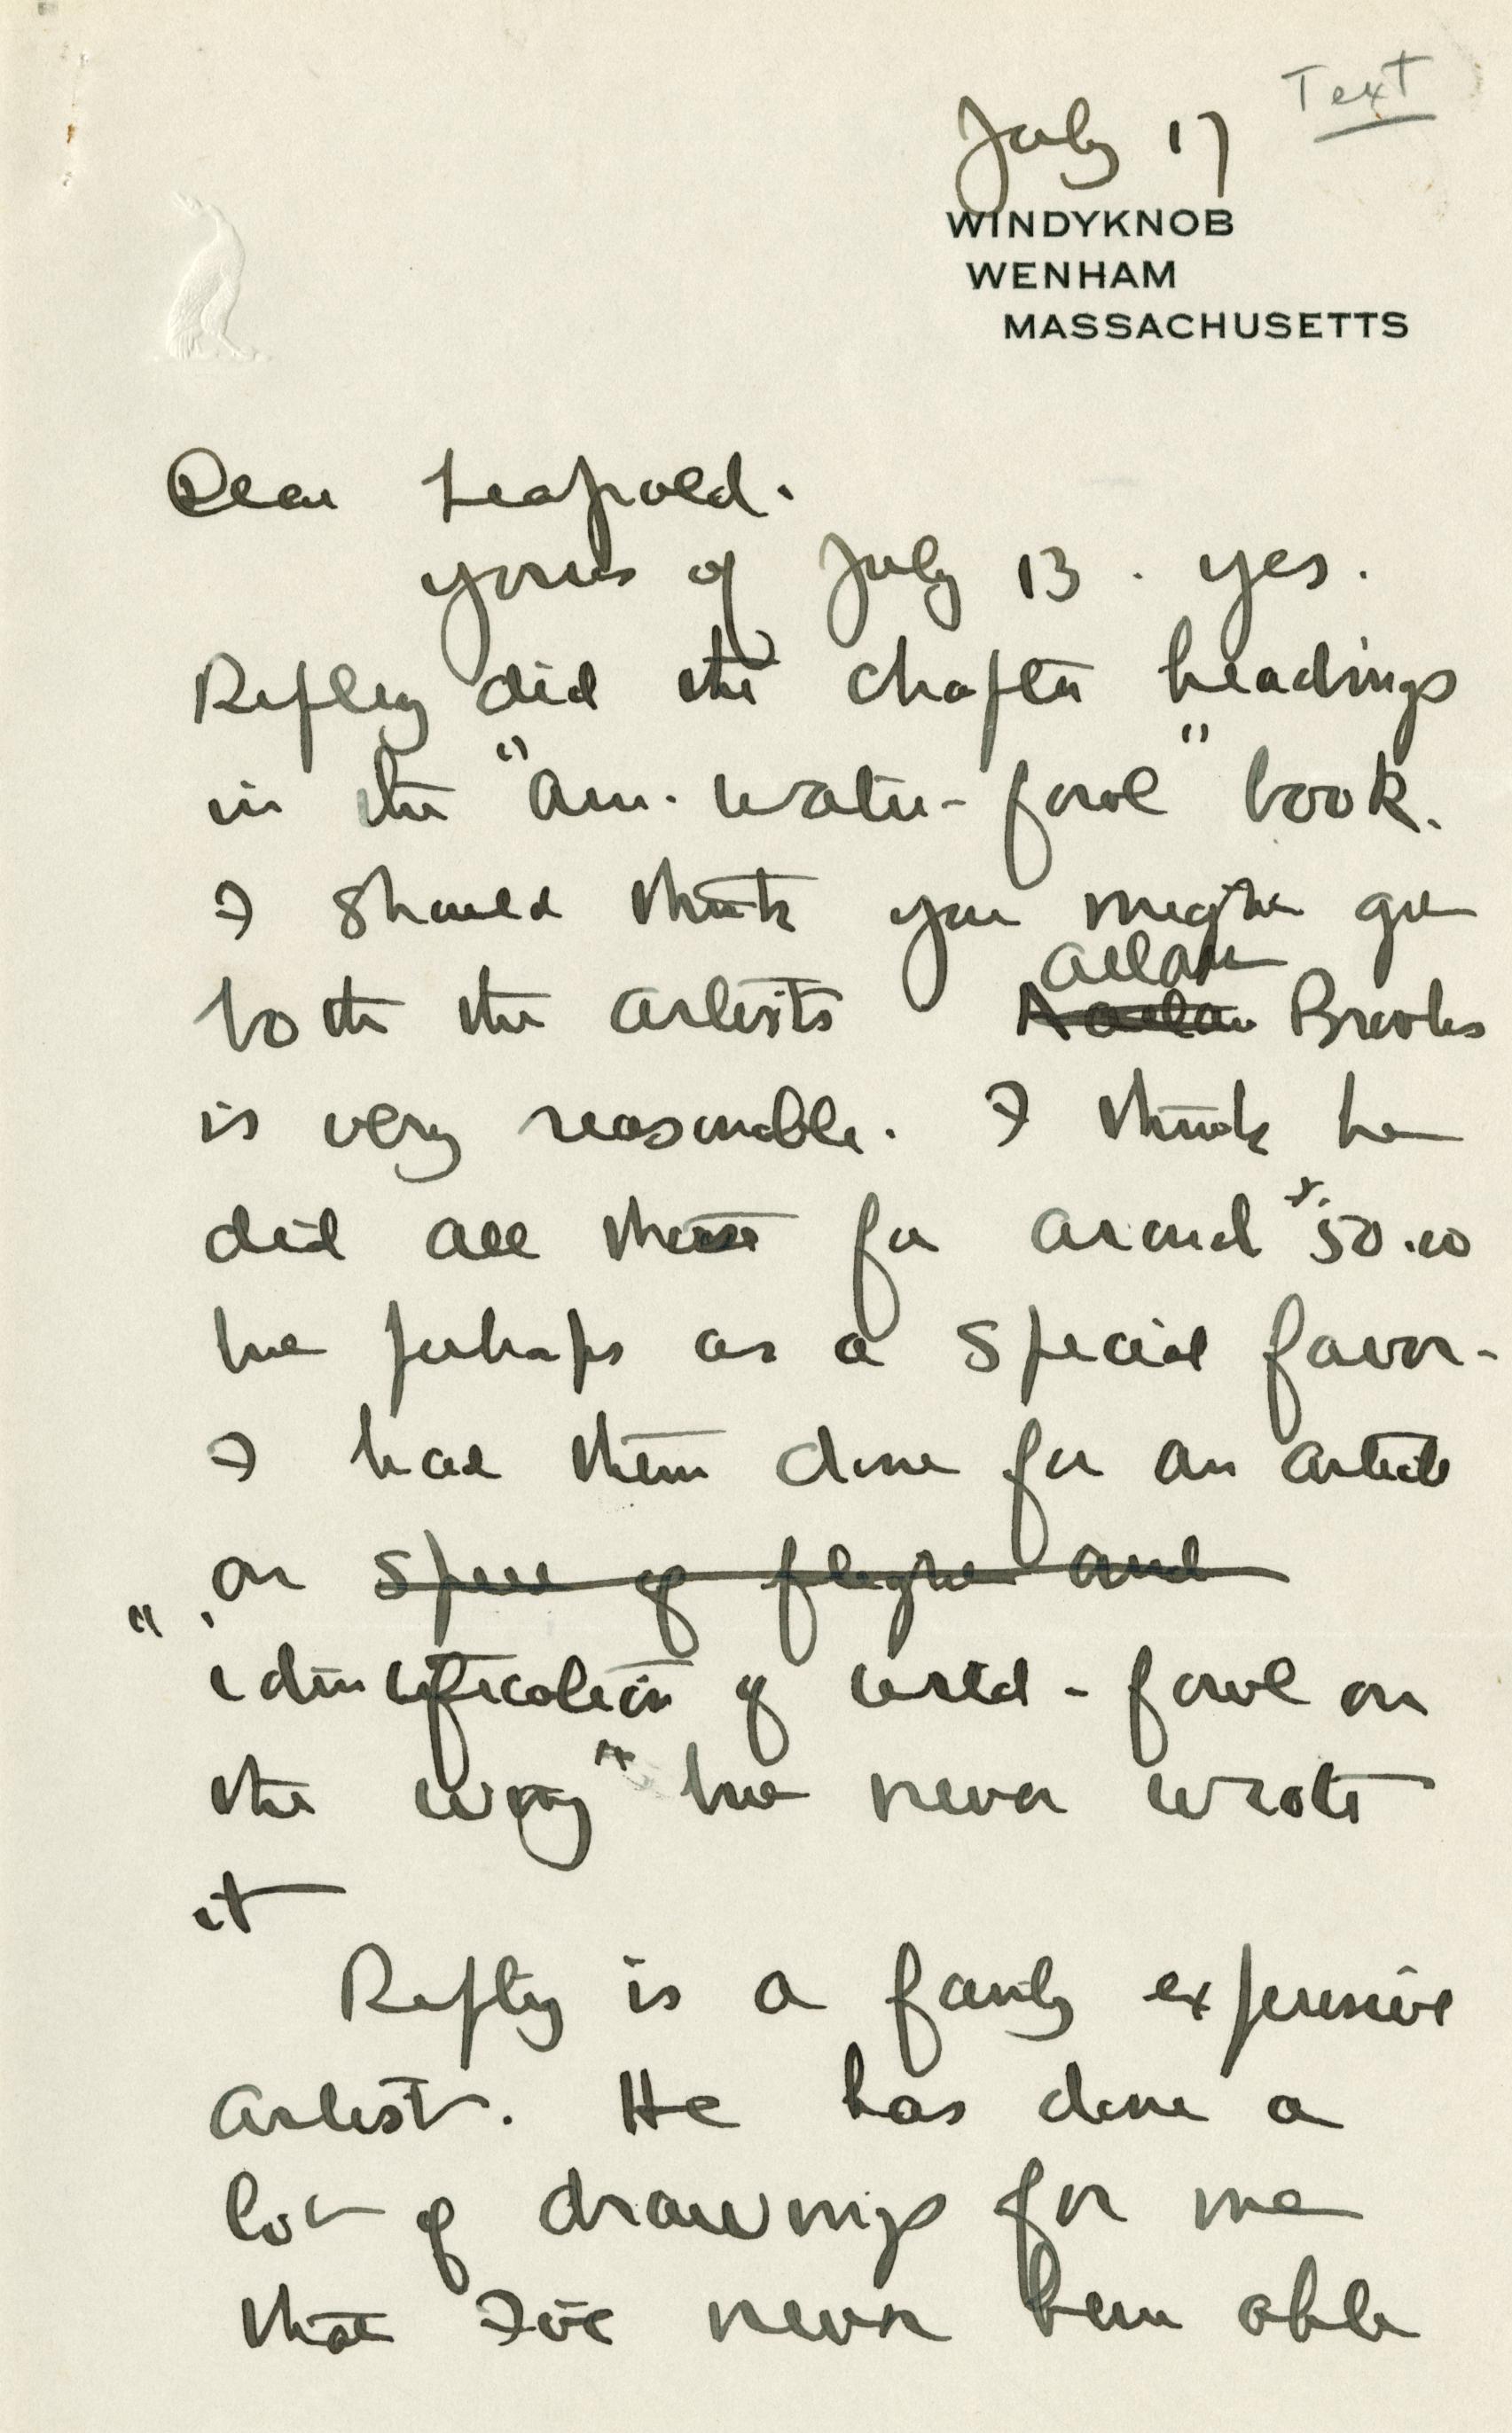 Text
July 17
WINDYKNOB
WENHAM
MASSACHUSETTS
Dear Leopold.
yours of July 13. yes.
Ripley did the chapter headings
in the "Am. Water-fowl" book.
I should think you might give
both the artists Allan Brooks
is very reasonable. I think he
did all these for around $50.00
but perhaps as a special favor-
I had them done for an article
on speed of flight and
"identification of wild-fowl on
the wing" but never wrote
it
Ripley is a fairly expensive
artist. He has done a
lot of drawings for me
that I've never been able